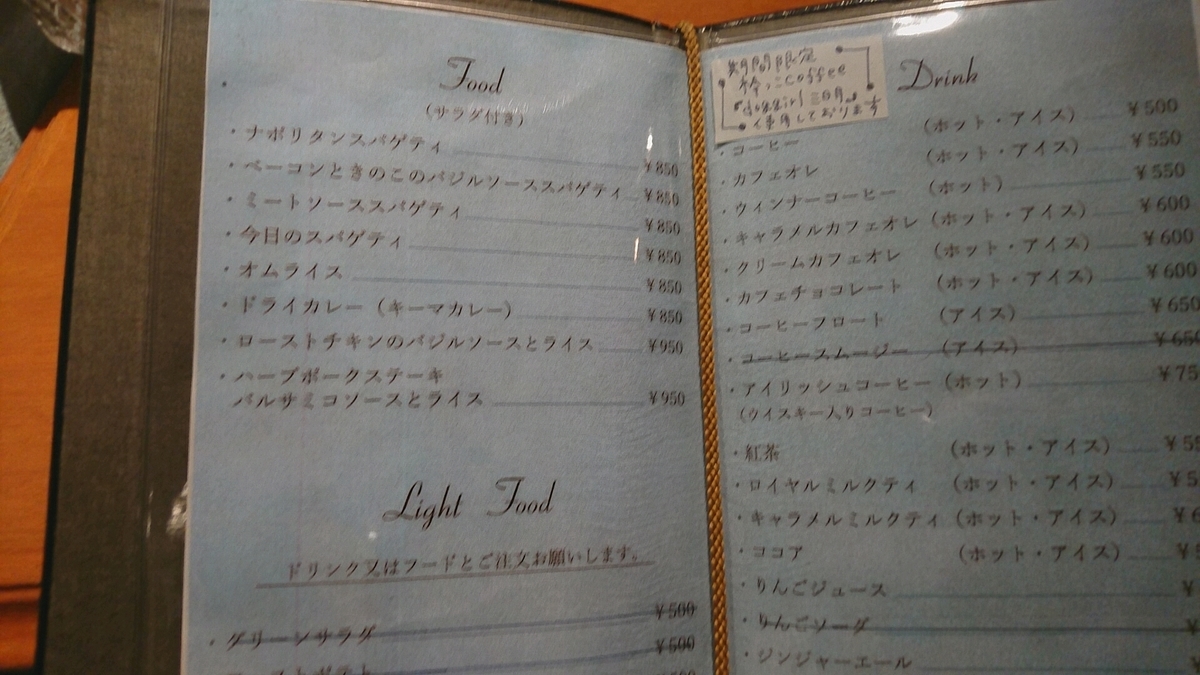 Food
(サラダ付き)
・ナポリタンスパゲティ ¥850
・ベーコンときのこのバジルソーススパゲティ ¥850
・ミートソーススパゲティ ¥850
・今日のスパゲティ ¥850
・オムライス ¥850
・ドライカレー (キーマカレー) ¥850
・ローストチキンのバジルソースとライス ¥950
・ハーブポークステーキ
バルサミコソースとライス ¥950
Light Food
ドリンクスはフードとご注文お願いします。
・グリーンサラダ ¥500
¥500
期間限定
coffee
使用しております
Drink
・コーヒー (ホット・アイス) ¥500
・カフェオレ (ホット・アイス) ¥550
・ウィンナーコーヒー (ホット) ¥550
・キャラメルカフェオレ (ホット・アイス) ¥600
・クリームカフェオレ (ホット・アイス) ¥600
・カフェチョコレート (ホット・アイス) ¥600
・コーヒーフロート (アイス) ¥650
・コーヒースムージー (アイス) ¥650
・アイリッシュコーヒー (ホット)
(ウイスキー入りコーヒー)
・紅茶 (ホット・アイス)
・ロイヤルミルクティ (ホット・アイス)
・キャラメルミルクティ (ホット・アイス)
・ココア (ホット・アイス)
・りんごジュース
・りんごソーダ
・ジンジャーエール